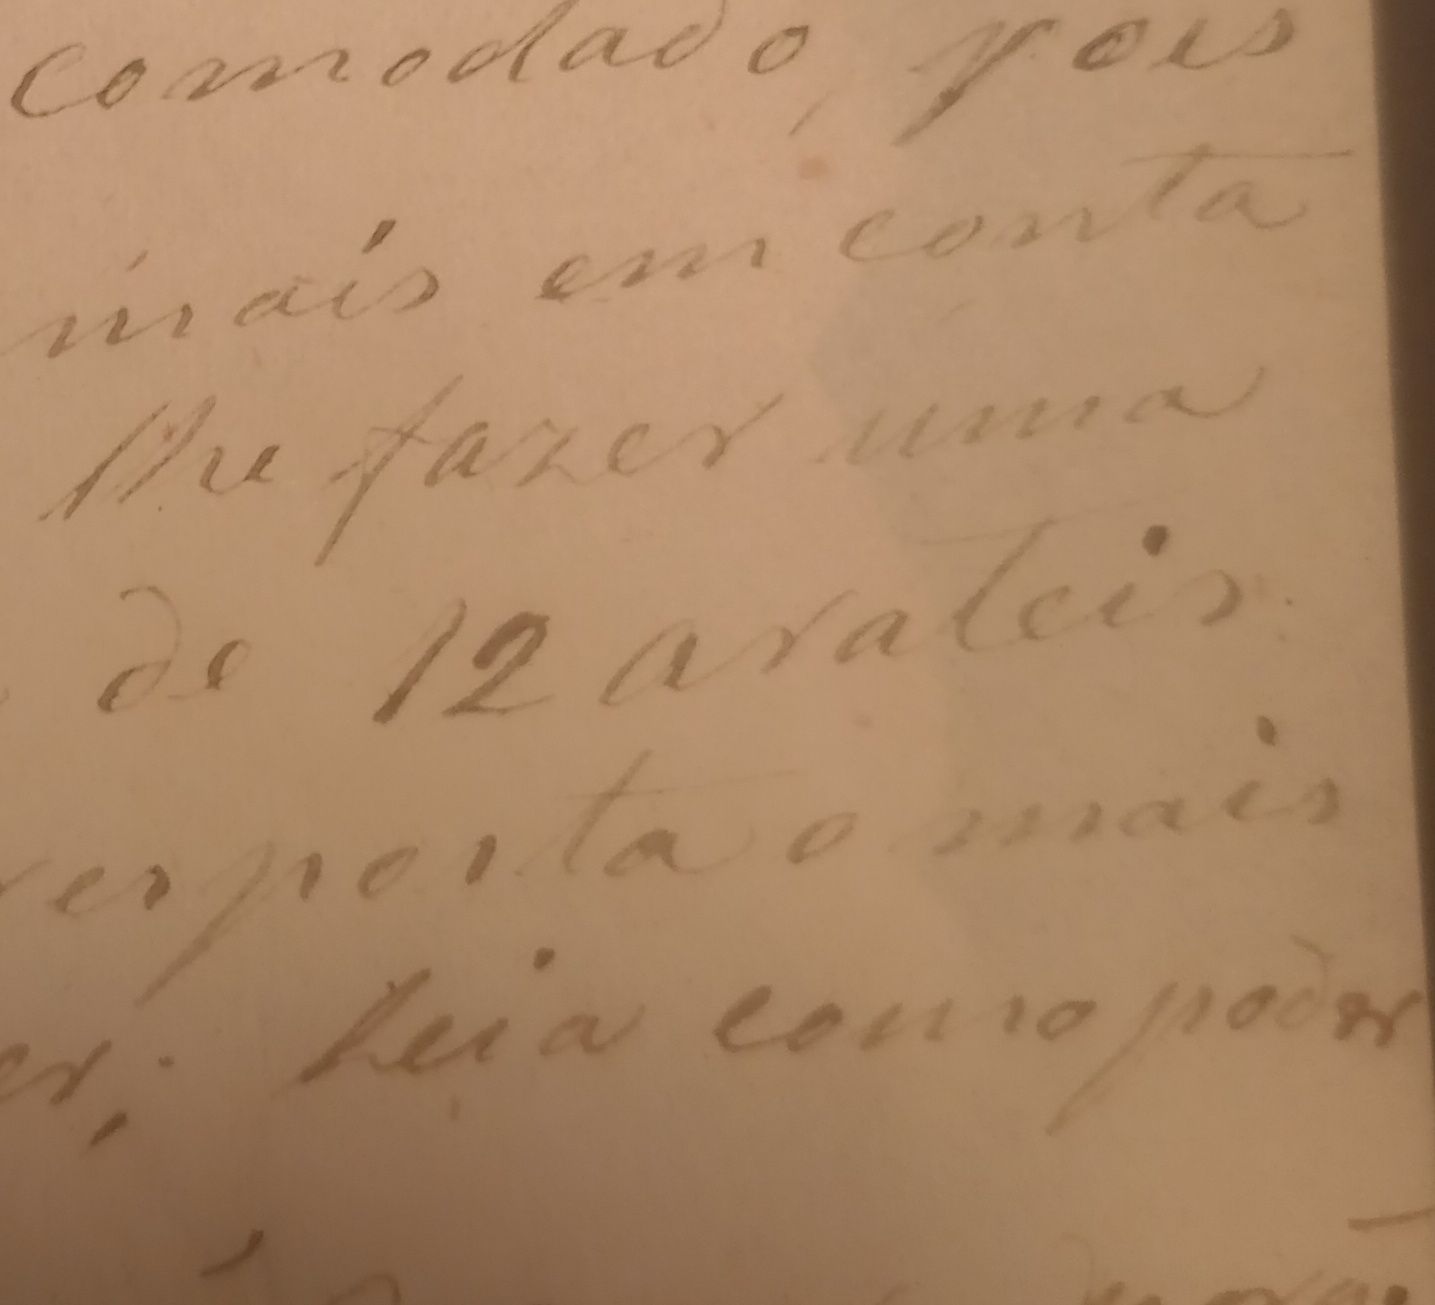 comodado, pois
mais em conta
lhe fazer uma
de 12 arateis
resposta o mais
er; Leia como poder